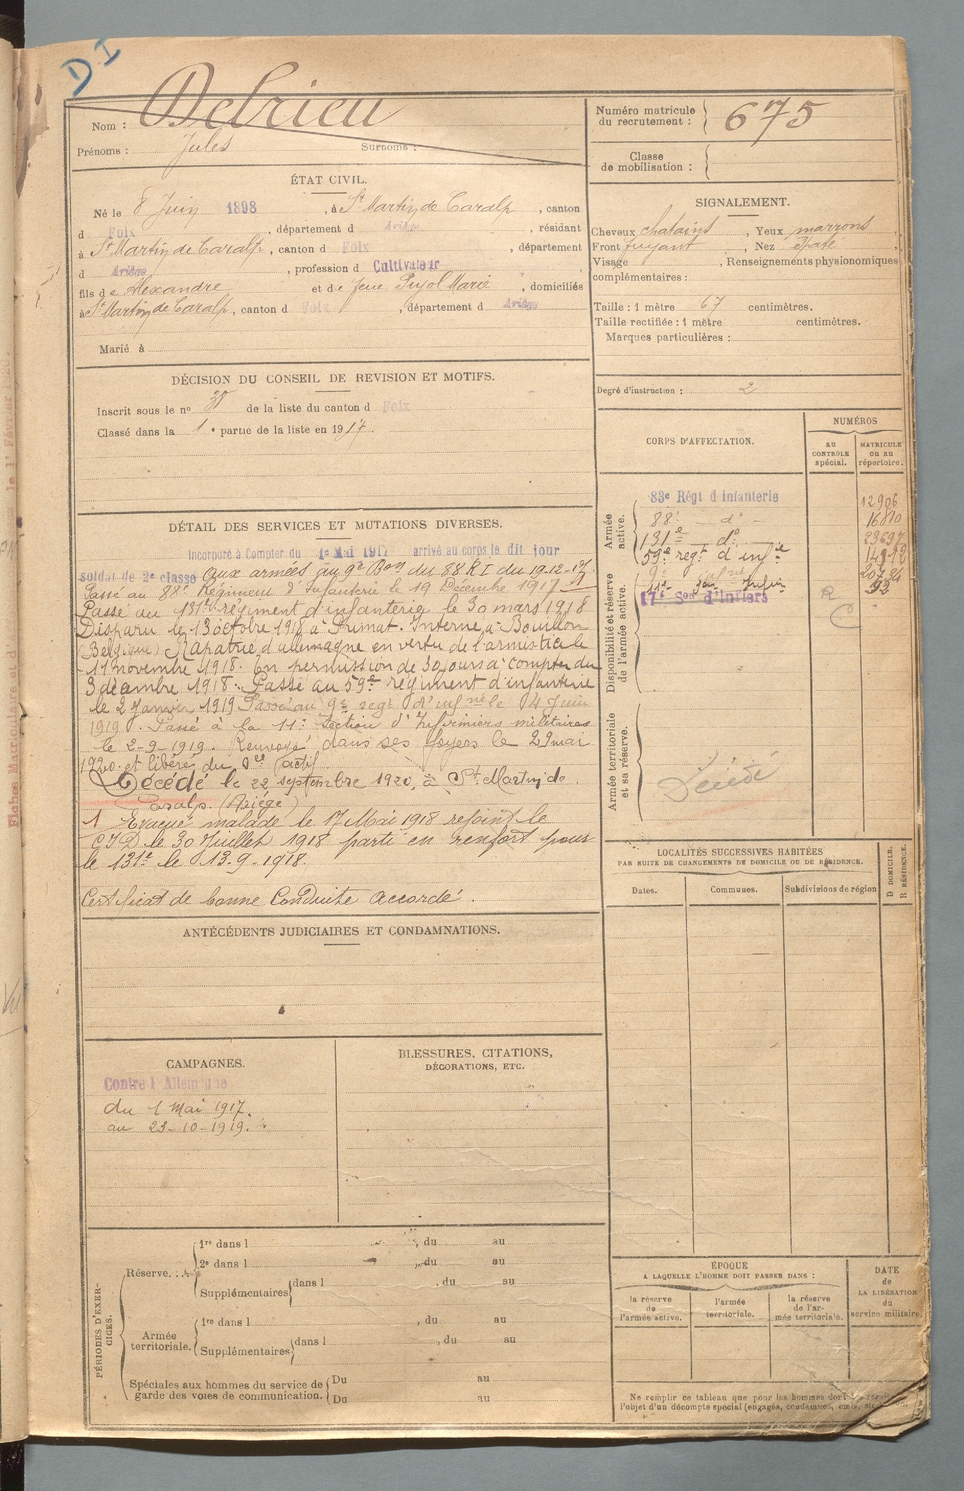 DI
Nom : Delrieu
Prénoms : Jules Surnoms :
Numéro matricule du recrutement : 675
Classe de mobilisation :
ÉTAT CIVIL.
Né le 8 Juin 1898, à St Martin de Caralp, canton
d Foix, département d Ariège, résidant
à St Martin de Caralp, canton d Foix, département
d Ariège, profession d Cultivateur
fils de Alexandre et de feue Pujol Marie, domiciliés
à St Martin de Caralp, canton d Foix, département d Ariège
Marié à
SIGNALEMENT.
Cheveux chatains, Yeux marrons,
Front fuyant, Nez épaté
Visage , Renseignements physionomiques
complémentaires :
Taille : 1 mètre 67 centimètres.
Taille rectifiée : 1 mètre centimètres.
Marques particulières :
Degré d'instruction : 2
DÉCISION DU CONSEIL DE REVISION ET MOTIFS.
Inscrit sous le no 38 de la liste du canton d Foix
Classé dans la 1e partie de la liste en 1917.
CORPS D'AFFECTATION.
NUMÉROS
AU CONTRÔLE spécial.
MATRICULE ou au répertoire.
Armée active.
83e Régt d infanterie 12906
88e do 16810
131e do 23637
59e regt d infie
Disponibilité et réserve de l'armée active.
17e Son d'Infiers 92
R
C
Armée territoriale et sa réserve.
Décédé
DÉTAIL DES SERVICES ET MUTATIONS DIVERSES.
Incorporé à Compter du 1e Mai 1917 arrivé au corps le dit jour
soldat de 2e classe Aux armées au 9e Bon du 88 RI du 19-12-17.
Passé au 88e Régiment d'Infanterie le 19 Décembre 1917
Passé au 131e régiment d'infanterie le 30 mars 1918
Disparu le 13 octobre 1918 à Primat. Interné à Bouillon
(Belgique) Rapatrié d'allemagne en vertu de l'armistice le
11 novembre 1918. En permission de 30 jours à compter du
3 décembre 1918. Passé au 59e régiment d'infanterie
le 2 Janvier 1919 Passé au 9e regt d'infrie le 4 Juin
1919. Passé à la 11e section d'Infirmiers militaires
le 2-9-1919. Renvoyé dans ses foyers le 29 mai
1920 et libéré du Sce actif
Décédé le 22 septembre 1920, à St Martin de
Caralp. (Ariège)
1 Evacué malade le 17 Mai 1918 rejoint le
CID le 30 Juillet 1918 parti en renfort pour
le 131e le 13-9-1918.
Certificat de bonne Conduite accordé.
LOCALITÉS SUCCESSIVES HABITÉES
PAR SUITE DE CHANGEMENTS DE DOMICILE OU DE RÉSIDENCE.
Dates. Communes. Subdivisions de région
D DOMICILE. R RÉSIDENCE.
ANTÉCÉDENTS JUDICIAIRES ET CONDAMNATIONS.
CAMPAGNES.
Contre l Allemagne
du 1 Mai 1917.
au 23-10-1919.
BLESSURES, CITATIONS,
DÉCORATIONS, ETC.
PÉRIODES D'EXERCICES.
Réserve...
1re dans l , du au
2e dans l , du au
Supplémentaires dans l , du au
Armée territoriale.
1re dans l , du au
Supplémentaires dans l , du au
Spéciales aux hommes du service de garde des voies de communication.
Du au
Du au
ÉPOQUE
A LAQUELLE L'HOMME DOIT PASSER DANS :
la réserve de l'armée active.
l'armée territoriale.
la réserve de l'armée territoriale.
DATE de LA LIBÉRATION du service militaire.
Ne remplir ce tableau que pour les hommes dont
l'objet d'un décompte spécial (engagés, condamnés,